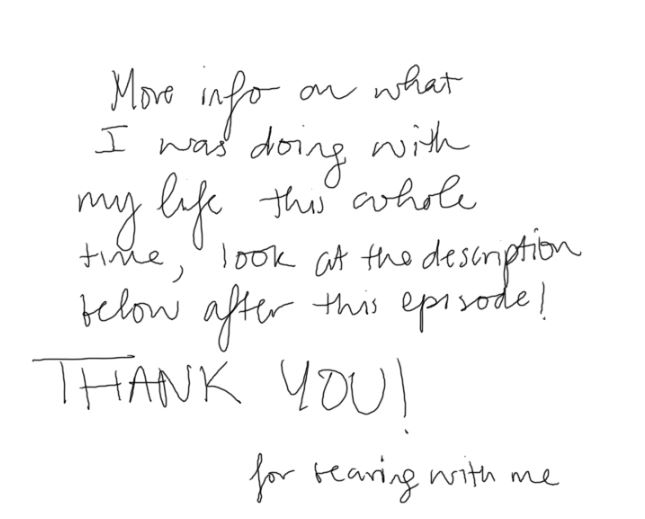 More info on what
I was doing with
my life this whole
time, look at the description
below after this episode!
THANK YOU!
for bearing with me